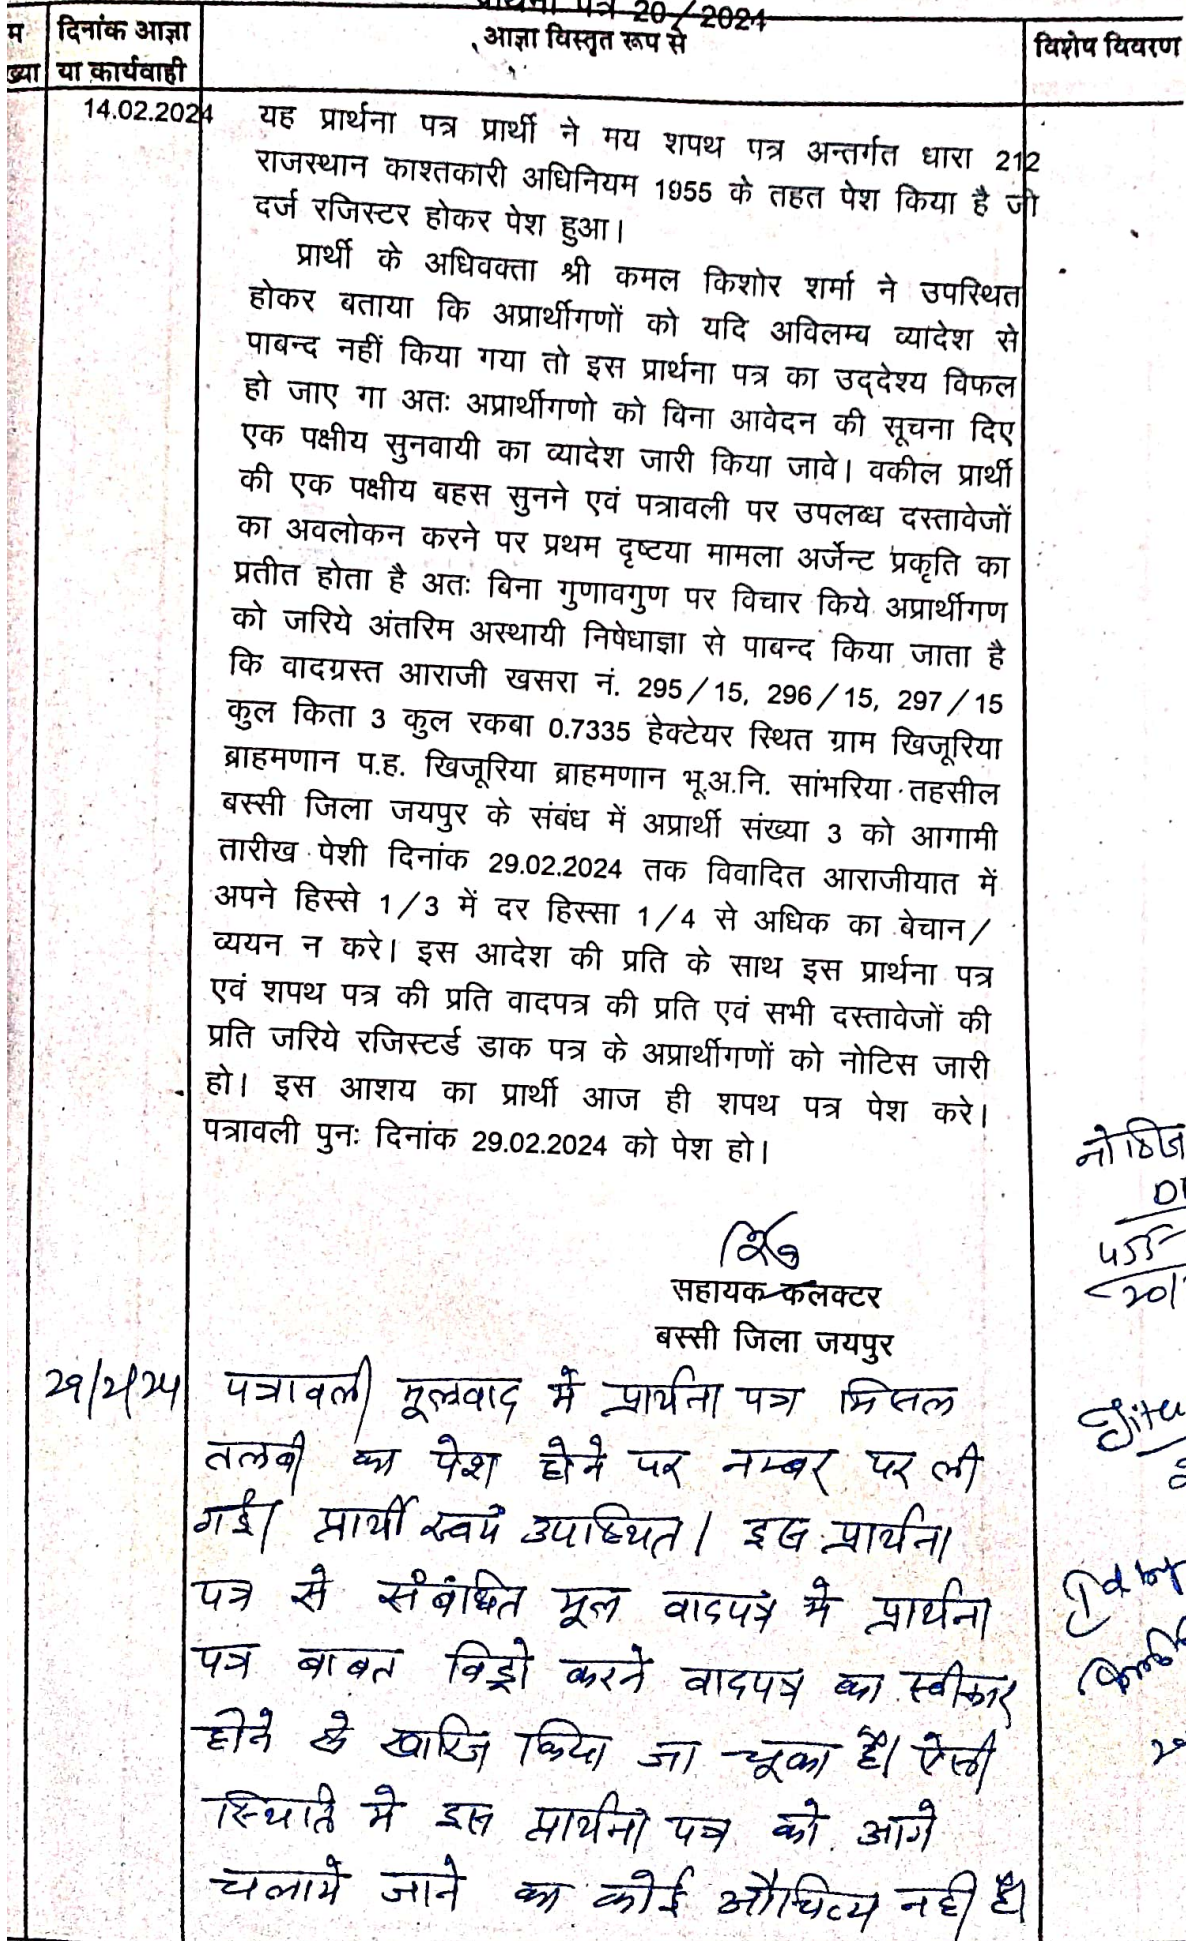 प्रार्थना पत्र 20/2024
दिनांक आज्ञा
या कार्यवाही
आज्ञा विस्तृत रूप से
विशेष विवरण
14.02.2024
यह प्रार्थना पत्र प्रार्थी ने मय शपथ पत्र अन्तर्गत धारा 212
राजस्थान काश्तकारी अधिनियम 1955 के तहत पेश किया है जो
दर्ज रजिस्टर होकर पेश हुआ।
प्रार्थी के अधिवक्ता श्री कमल किशोर शर्मा ने उपस्थित
होकर बताया कि अप्रार्थीगणों को यदि अविलम्ब व्यादेश से
पाबन्द नहीं किया गया तो इस प्रार्थना पत्र का उद्देश्य विफल
हो जाए गा अतः अप्रार्थीगणो को बिना आवेदन की सूचना दिए
एक पक्षीय सुनवायी का व्यादेश जारी किया जावे। वकील प्रार्थी
की एक पक्षीय बहस सुनने एवं पत्रावली पर उपलब्ध दस्तावेजों
का अवलोकन करने पर प्रथम दृष्टया मामला अर्जेन्ट प्रकृति का
प्रतीत होता है अतः बिना गुणावगुण पर विचार किये अप्रार्थीगण
को जरिये अंतरिम अस्थायी निषेधाज्ञा से पाबन्द किया जाता है
कि वादग्रस्त आराजी खसरा नं. 295/15, 296/15, 297/15
कुल किता 3 कुल रकबा 0.7335 हेक्टेयर स्थित ग्राम खिजूरिया
ब्राहमणान प.ह. खिजूरिया ब्राहमणान भू.अ.नि. सांभरिया तहसील
बस्सी जिला जयपुर के संबंध में अप्रार्थी संख्या 3 को आगामी
तारीख पेशी दिनांक 29.02.2024 तक विवादित आराजीयात में
अपने हिस्से 1/3 में दर हिस्सा 1/4 से अधिक का बेचान/
व्ययन न करे। इस आदेश की प्रति के साथ इस प्रार्थना पत्र
एवं शपथ पत्र की प्रति वादपत्र की प्रति एवं सभी दस्तावेजों की
प्रति जरिये रजिस्टर्ड डाक पत्र के अप्रार्थीगणों को नोटिस जारी
हो। इस आशय का प्रार्थी आज ही शपथ पत्र पेश करे।
पत्रावली पुनः दिनांक 29.02.2024 को पेश हो।
सहायक कलक्टर
बस्सी जिला जयपुर
29/2/24 पत्रावली मूलवाद में प्रार्थना पत्र मिसल
तलबी का पेश होने पर नम्बर पर ली
गई। प्रार्थी स्वयं उपस्थित। इस प्रार्थना
पत्र से संबंधित मूल वादपत्र मे प्रार्थना
पत्र बाबत विड्रो करने वादपत्र का स्वीकार
होने से खारिज किया जा चूका है। ऐसी
स्थिति मे इस प्रार्थना पत्र को आगे
चलाये जाने का कोई औचित्य नही है।